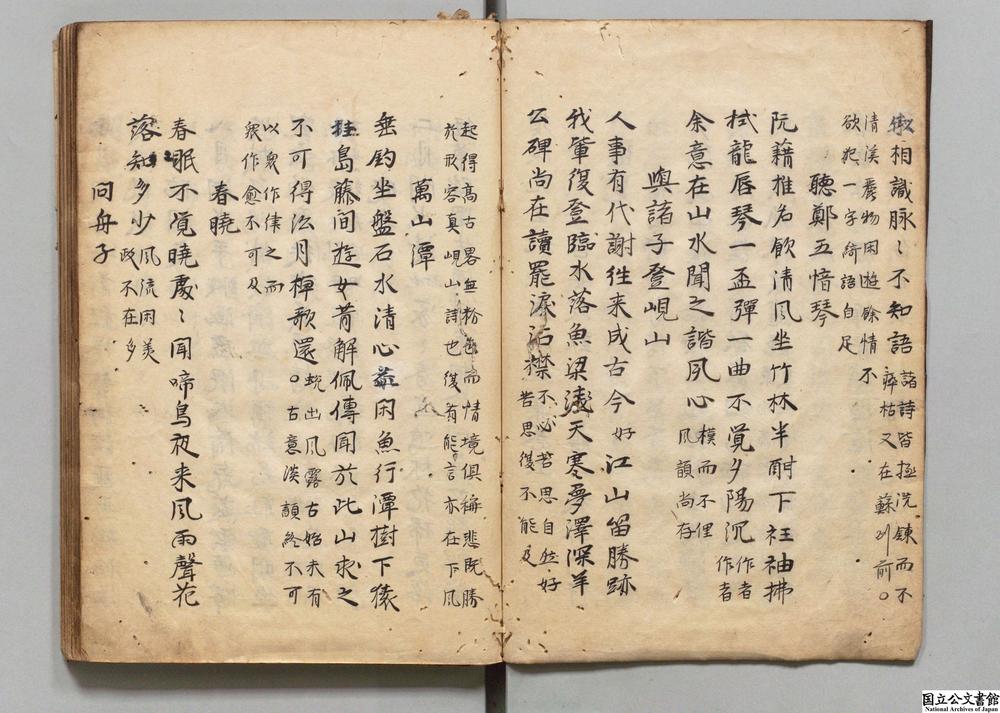 相識脉〻不知語 諸詩皆極洗鍊而不
瘁枯又在蘇州前○
清溪麗物困遊餘情不
欲犯一字綺語自足
聽鄭五愔琴
阮藉推名飲清風坐竹林半酣下衽袖拂
拭龍唇琴一盃彈一曲不覚夕陽沉 作者
作者
余意在山水聞之諧夙心 模而不俚
風韻尚存
與諸子登峴山
人事有代謝往来成古今 好 江山留勝跡
我軰復登臨水落魚梁淺天寒夢澤深羊
公碑尚在讀罷淚沾襟 不必苦思自然好
苦思復不能及
起得高古畧無粉色而情境俱稱悲既勝
於形容真峴山詩也後有能言亦在下風
萬山潭
垂釣坐盤石水清心益閑魚行潭樹下猿
挂島藤間遊女昔解佩傳聞於此山求之
不可得沿月棹歌還○ 蛻出風露古始未有
古意淡韻終不可
以衆作僕之而
衆作愈不可及
春曉
春眠不覚曉處〻聞啼鳥夜来風雨聲花
落知多少 風流閑美
政不在多
問舟子
国立公文書館
National Archives of Japan